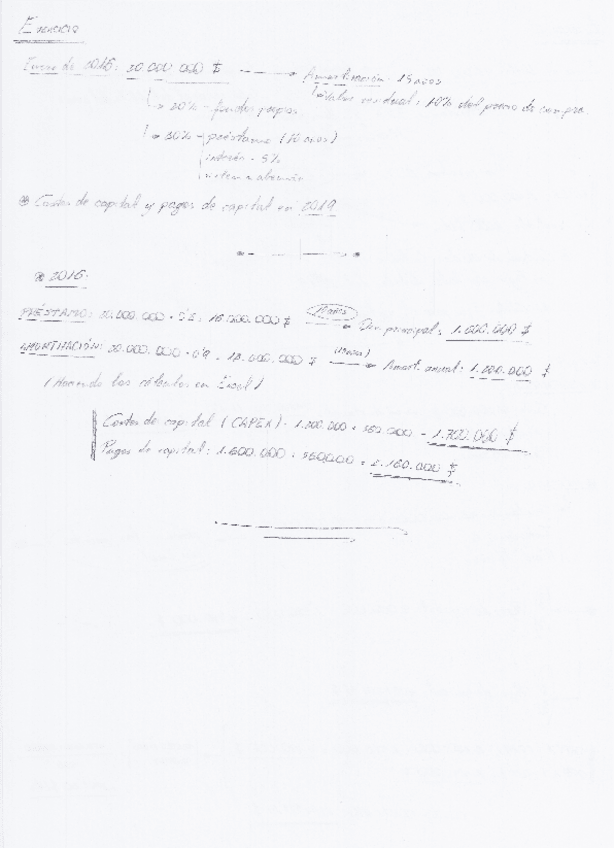 Ejercicio
Enero de 2016: 20.000.000 $ → Amortización: 15 años
Valor residual: 10% del precio de compra
→ 20% - fondos propios
→ 80% - préstamo (10 años)
interés - 5%
sistema alemán
* Costes de capital y pagos de capital en 2019
* 2016:
PRÉSTAMO: 20.000.000 · 0'8 = 16.000.000 $ (10 años) → principal: 1.600.000 $
AMORTIZACIÓN: 20.000.000 · 0'9 = 18.000.000 $ (15 años) → Amort. anual: 1.200.000 $
(Haciendo los cálculos en Excel)
Costes de capital (CAPEX): 1.200.000 + 560.000 = 1.760.000 $
Pagos de capital: 1.600.000 + 560.000 = 2.160.000 $